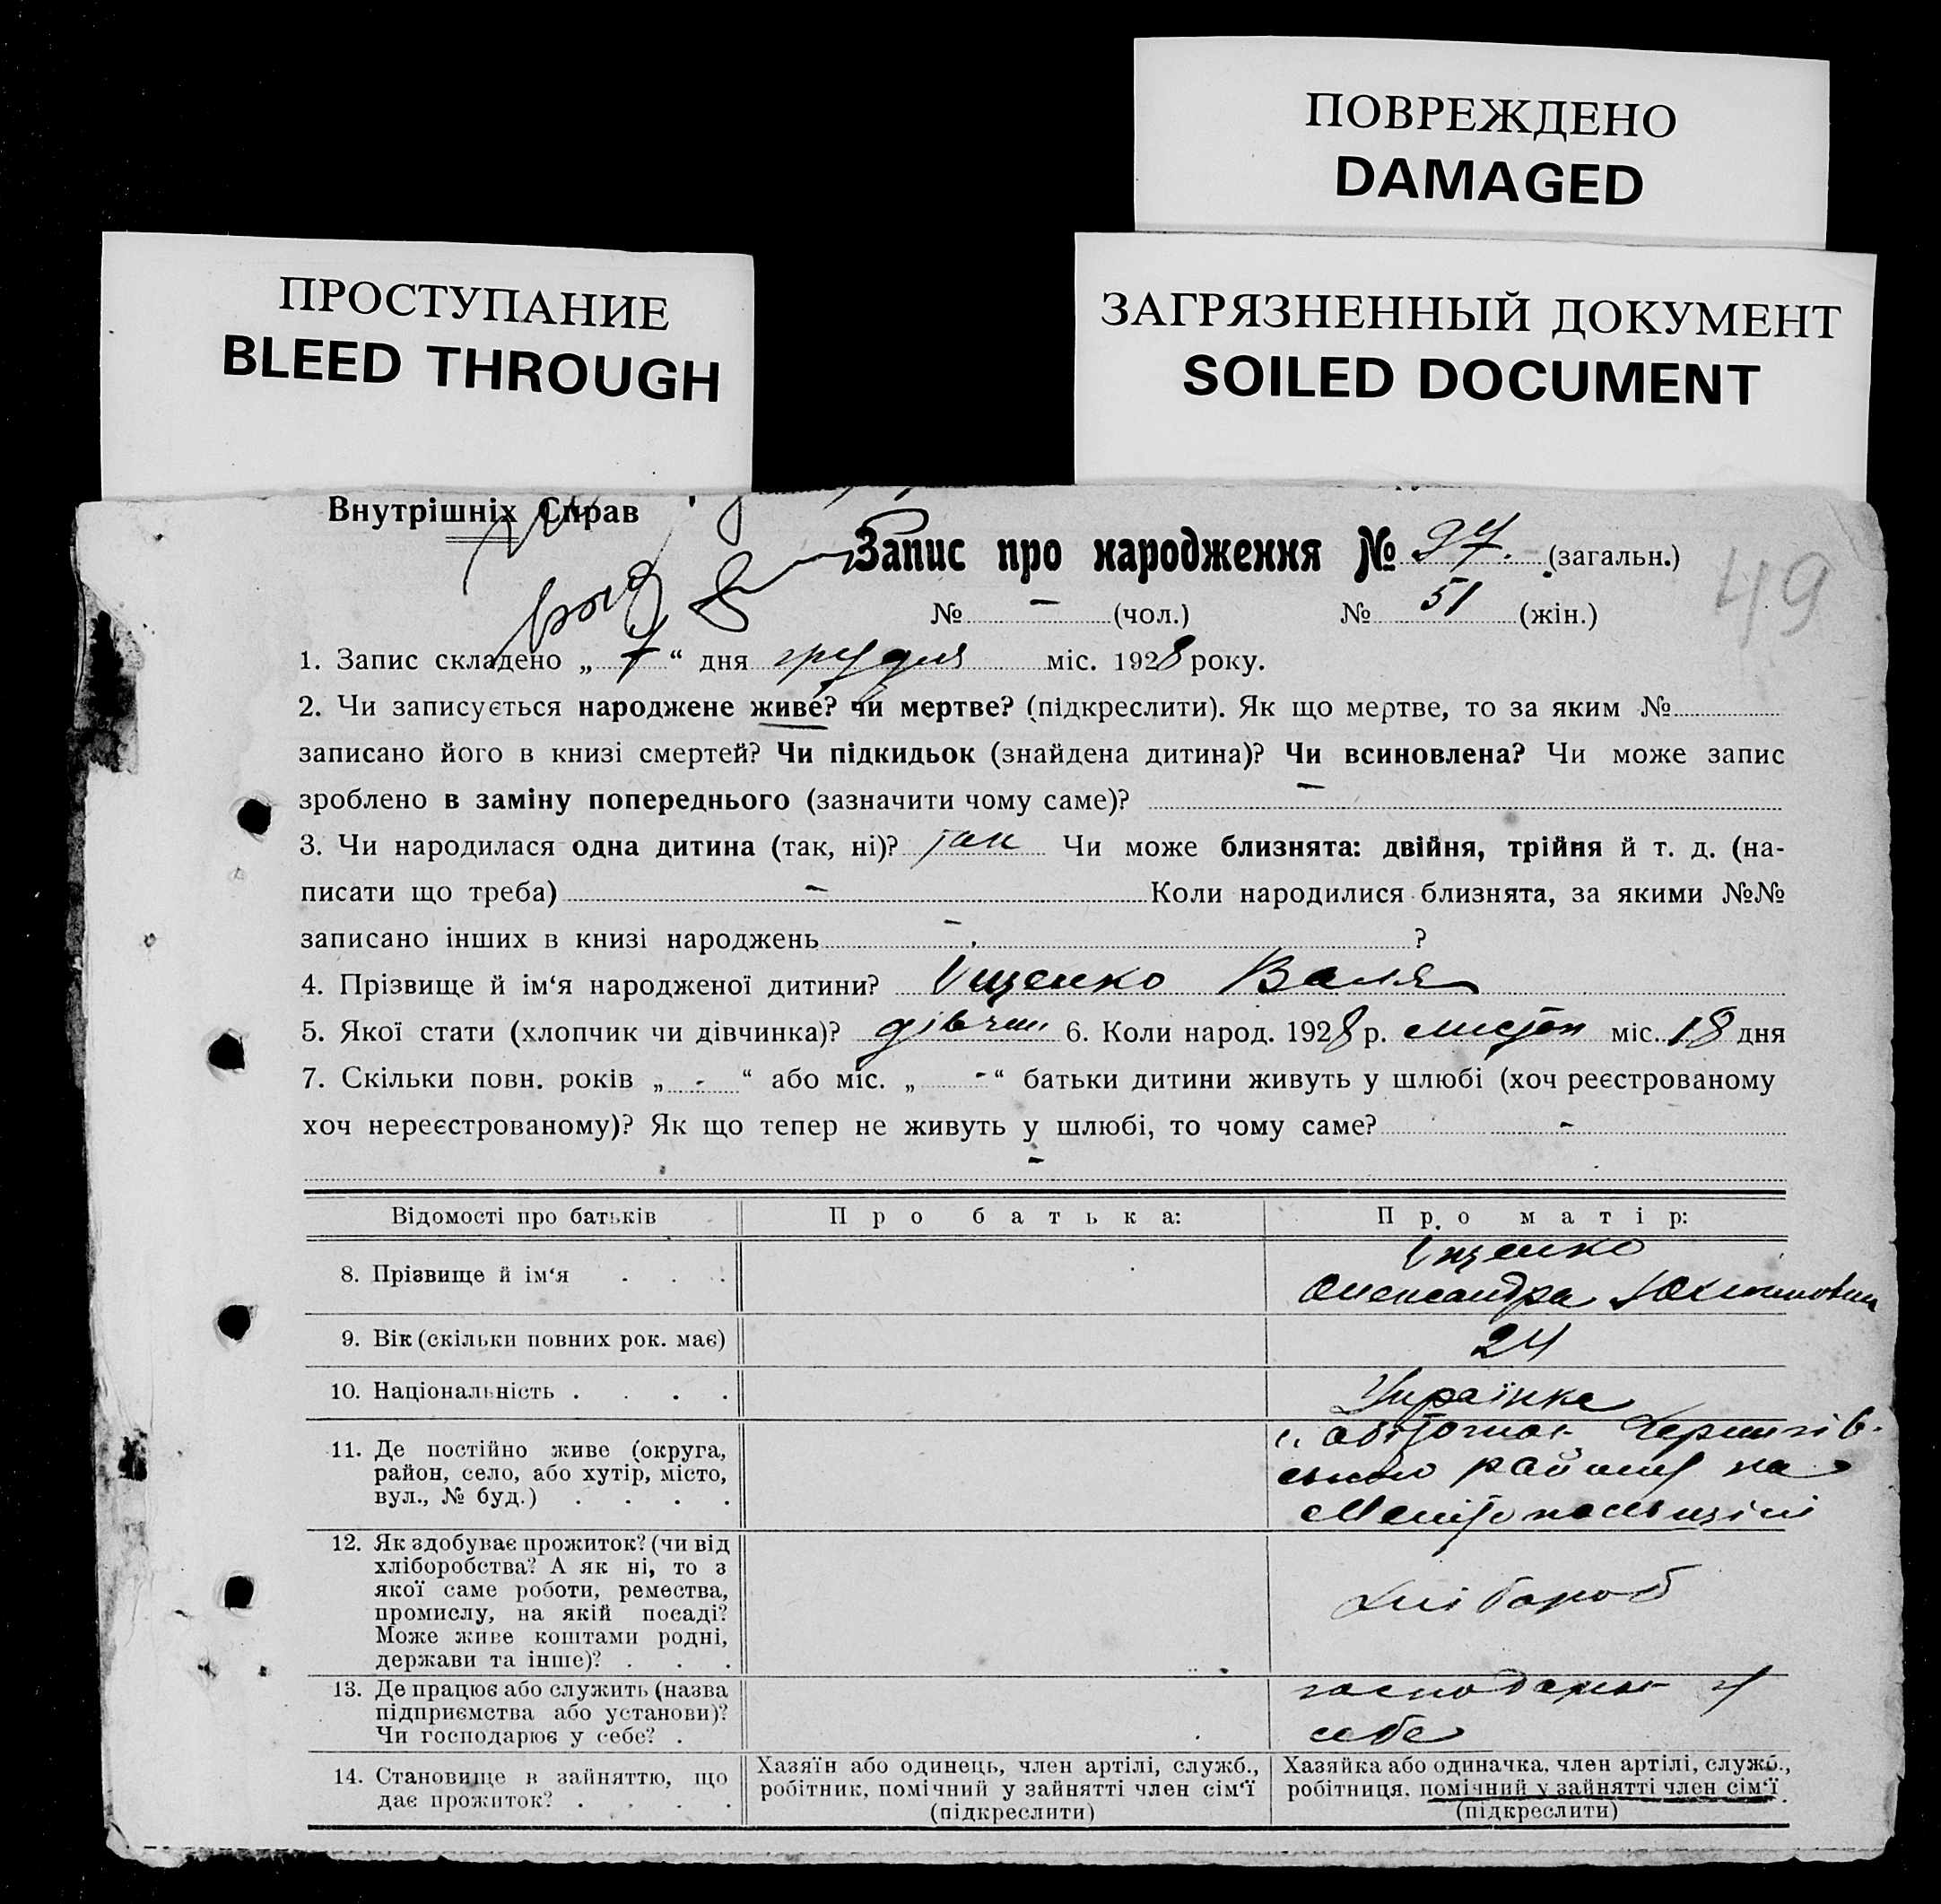 ПОВРЕЖДЕНО
DAMAGED
ПРОСТУПАНИЕ
BLEED THROUGH
ЗАГРЯЗНЕННЫЙ ДОКУМЕНТ
SOILED DOCUMENT
Внутрішніх Справ
Запис про народження № 97. (загальн.)
49
№ - (чол.) № 51 (жін.)
1. Запис складено „ 7 “ дня грудня міс. 1928 року.
2. Чи записується народжене живе? чи мертве? (підкреслити). Як що мертве, то за яким №
записано його в книзі смертей? Чи підкидьок (знайдена дитина)? Чи всиновлена? Чи може запис
зроблено в заміну попереднього (зазначити чому саме)? -
3. Чи народилася одна дитина (так, ні)? так Чи може близнята: двійня, трійня й т. д. (на-
писати що треба) - Коли народилися близнята, за якими №№
записано інших в книзі народжень - ?
4. Прізвище й ім‘я народженої дитини? Іщенко Валя
5. Якої стати (хлопчик чи дівчинка)? дівчин 6. Коли народ. 1928 р. листоп міс. 18 дня
7. Скільки повн. років „ - “ або міс. „ - “ батьки дитини живуть у шлюбі (хоч реєстрованому
хоч нереєстрованому)? Як що тепер не живуть у шлюбі, то чому саме? -
-
Відомості про батьків Про батька: Про матір:
8. Прізвище й ім‘я . . .
Іщенко
Олександра
9. Вік (скільки повних рок. має)
24
10. Національність . . . .
Українка
11. Де постійно живе (округа,
район, село, або хутір, місто,
вул., № буд.) . . . .
району на
Мелітопольщині
12. Як здобуває прожиток? (чи від
хліборобства? А як ні, то з
якої саме роботи, ремества,
промислу, на якій посаді?
Може живе коштами родні,
держави та інше)? . . .
хлібороб
13. Де працює або служить (назва
підприємства або установи)?
Чи господарює у себе? .
господарює у
себе
14. Становище в зайняттю, що
дає прожиток? . . . .
Хазяїн або одинець, член артілі, служб.,
робітник, помічний у зайнятті член сім‘ї
(підкреслити)
Хазяйка або одиначка, член артілі, служб.,
робітниця, помічний у зайнятті член сім‘ї
(підкреслити)